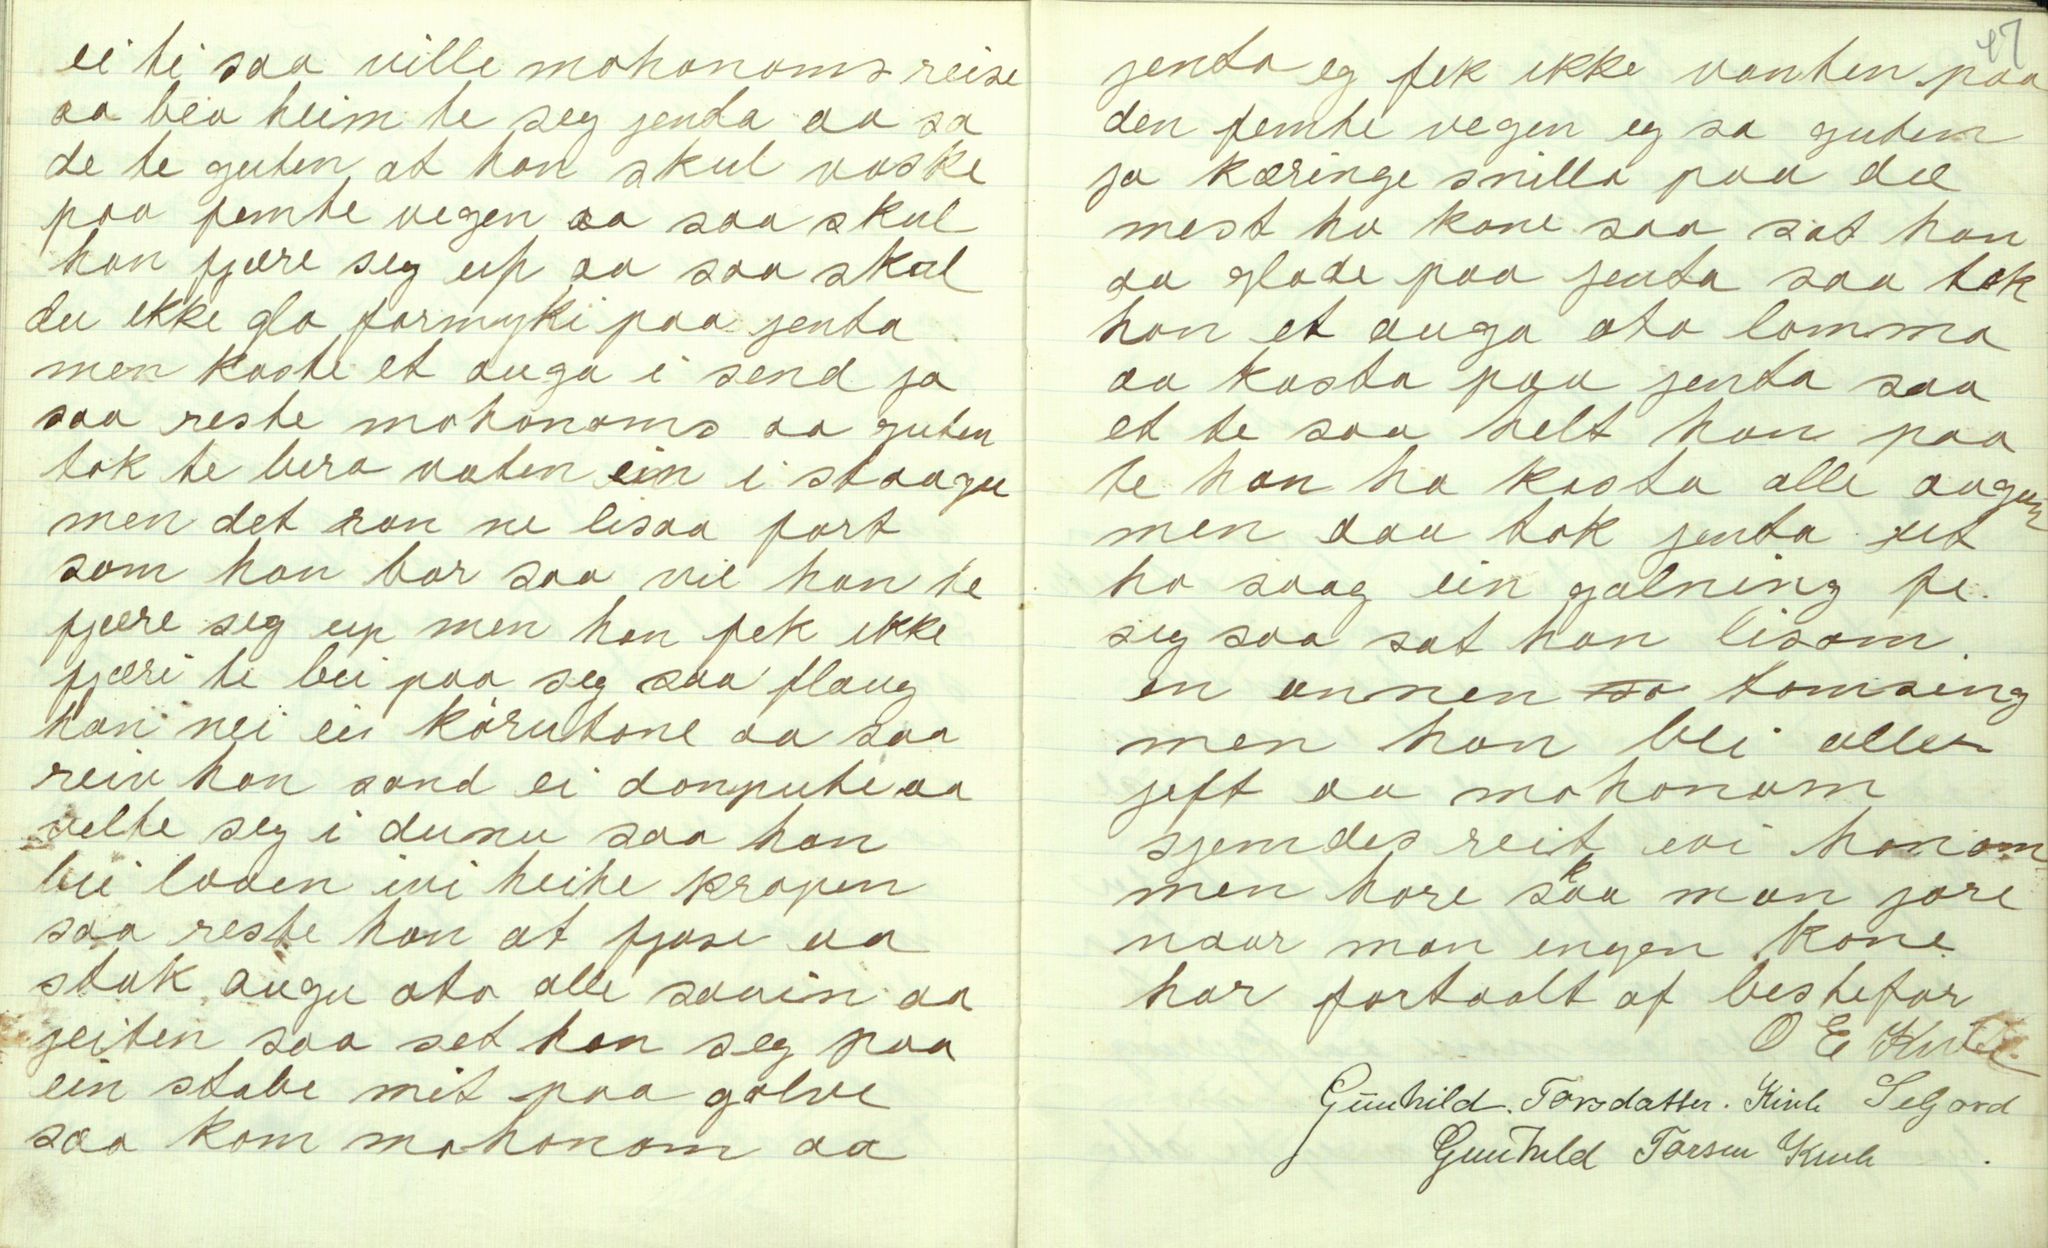 ei ti saa ville mohonoms reise
aa bea heim te seg jenta aa sa
de te guten at han skul vaske
paa femte vegen aa saa skul
han fjære seg up aa saa skul
du ikke glo formyki paa jenta
men kaste et auga i send ja
saa reste mohonoms aa guten
tok te bera vaten ein i staagu
men det ran ne lisaa fort
som han bar saa vil han te
fjære seg up men han fek ikke
fjæri te bli paa seg saa flaug
han nei ei körutone aa saa
reiv han sond ei donpute aa
velte seg i dunu saa han
blei looen ivi heihe kropen
saa reste han at fjøse aa
stak augu ota alle sauin aa
jeiten saa set han seg paa
ein stabe mit paa golve
saa kom mohonom aa
47
jenta eg fek ikke vanten paa
den femte vegen eg sa guten
ja kæringe snilla paa dæ
mest ha kone saa sat han
aa glode paa jenta saa tok
han et auga ota lomma
aa kasta paa jenta saa
et te saa helt han paa
te han ha kasta alle augun
men daa tok jenta ut
ho saag ein galning fe
seg saa sat han lisom
en annen tomsing
men han blei aller
jeft aa mohonom
sjemdes reit ivi honom
men hore skaa man jøre
naar man engen kone
har fortaalt af bestefar
O E Kivle
Gunhild. Torsdatter. Kivle Selgard
Gunhild Torsen Kivle